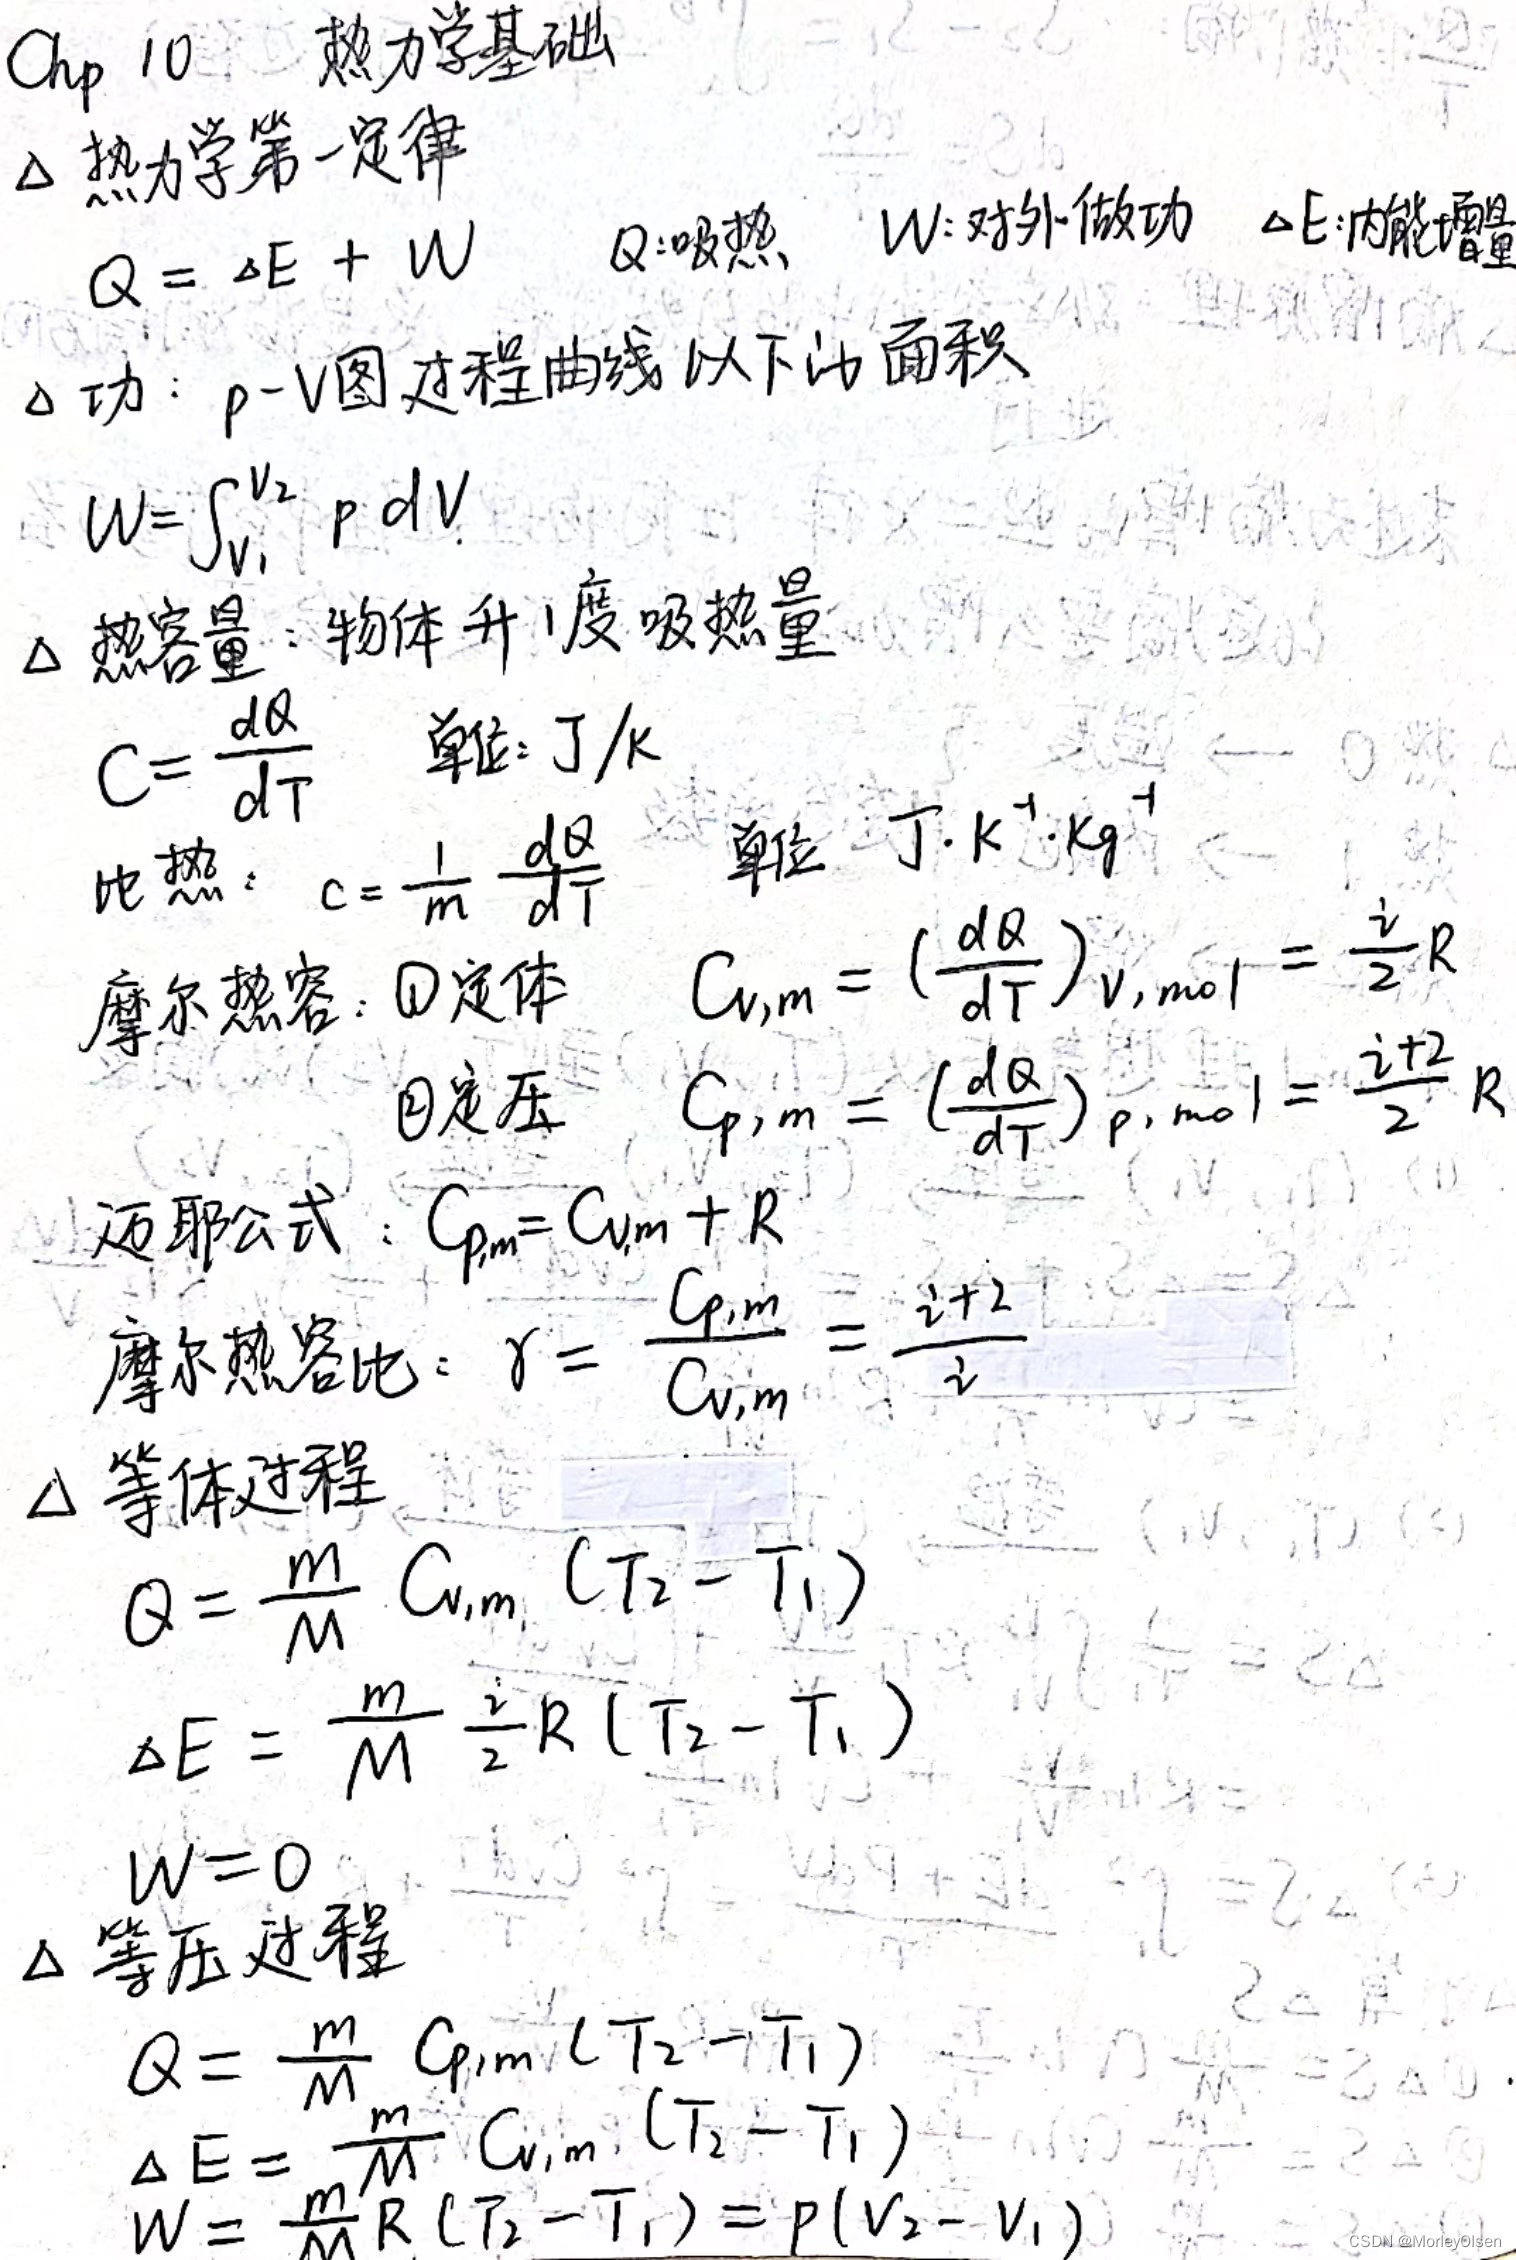 Chp 10 热力学基础
△ 热力学第一定律
Q = △E + W Q:吸热 W:对外做功 △E:内能增量
△ 功: p-V图过程曲线以下的面积
W=∫_{V₁}^{V₂} p dV
△ 热容量: 物体升1度吸热量
C = dQ/dT 单位: J/K
比热: c = 1/m dQ/dT 单位 J·K⁻¹·Kg⁻¹
摩尔热容: ①定体 C_{V,m} = (dQ/dT)_{V,mol} = i/2 R
②定压 C_{p,m} = (dQ/dT)_{p,mol} = (i+2)/2 R
迈耶公式: C_{p,m} = C_{V,m} + R
摩尔热容比: γ = C_{p,m}/C_{V,m} = (i+2)/i
△ 等体过程
Q = m/M C_{V,m} (T₂-T₁)
△E = m/M i/2 R (T₂-T₁)
W=0
△ 等压过程
Q = m/M C_{p,m} (T₂-T₁)
△E = m/M C_{V,m} (T₂-T₁)
W = m/M R (T₂-T₁) = p(V₂-V₁)
CSDN @MorleyOlsen